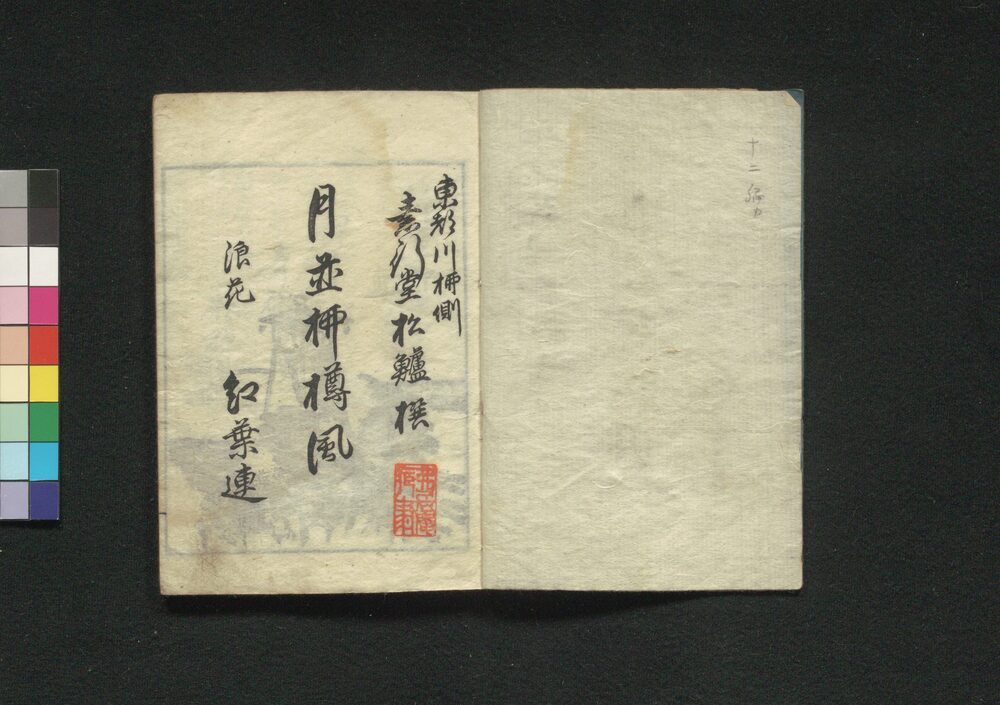 十二
東都川柳側
素行堂松鱸撰
月並柳樽風
浪花 紅葉連